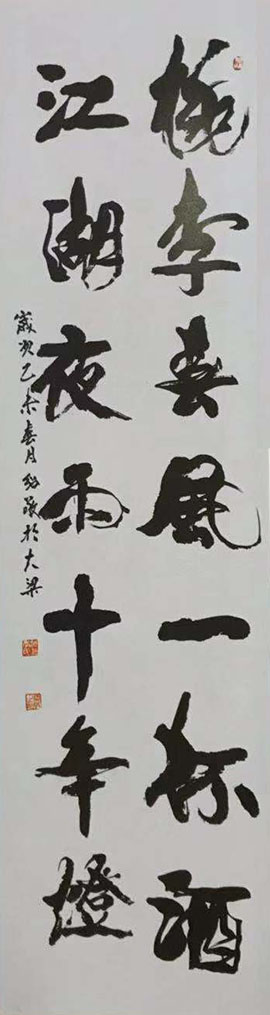 桃李春風一杯酒
江湖夜雨十年燈
歲次乙未春月於大梁